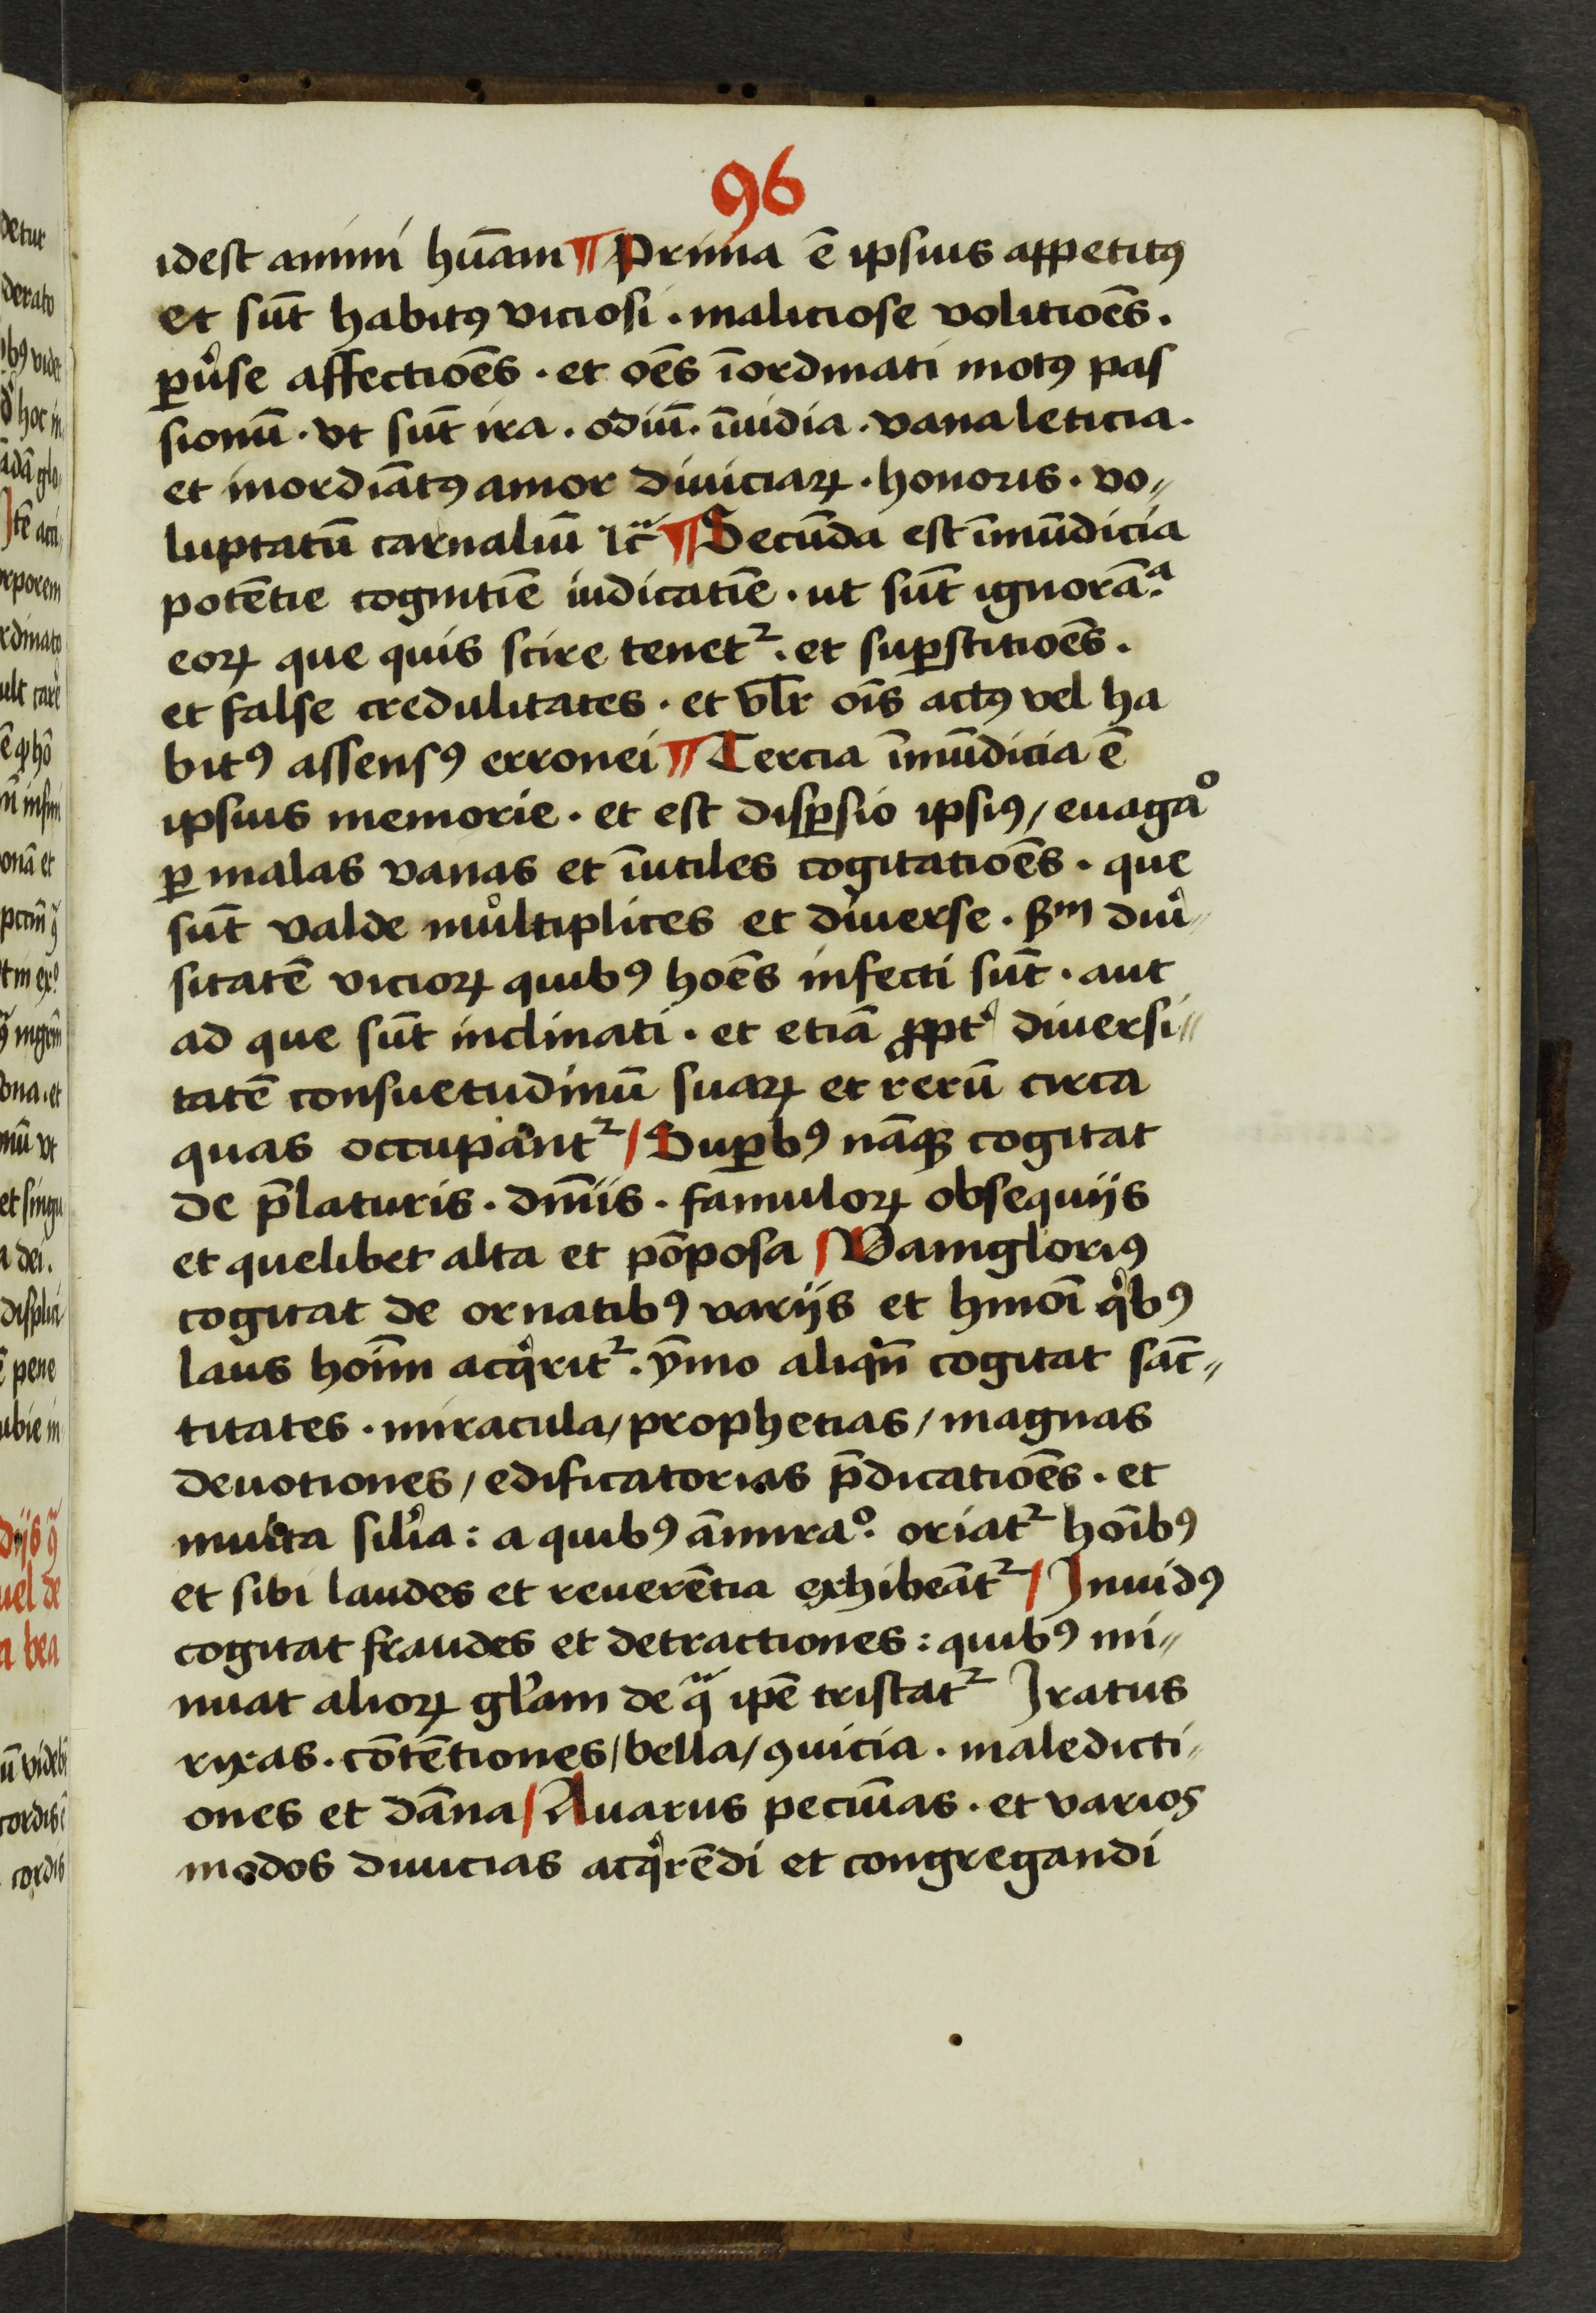 96
idest animi hūam ¶ Prima ē ipsius appetitꝰ
et sūt habitꝰ viciosi · maliciose volitiōēs ·
ꝑuͤse affectiōēs · et oēs īordinati motꝰ pas
sionū · vt sūt ira · odiū · īuidia · vana leticia ·
et inordiātꝰ amor diuiciaꝝ · honoris · vo〃
luptatū carnaliū ⁊c̄ ¶ Secūda est īmūdicia
potētie cognitīe iudicatīe · ut sūt ignorā.ᵃ
eoꝝ que quis scire tenet² · et suꝑstitiōēs ·
et false credulitates · et vl̄r oīs actꝰ vel ha
bitꝰ assensꝰ erronei ¶ Tercia īmūdicia ē
ipsius memorie · et est disꝑsio ipsiꝰ / euagaº
ꝑ malas vanas et īutiles cogitatiōēs · que
sūt valde multiplices et diuerse · ẞᵐ diuͥ〃
sitatē vicioꝝ quibꝰ hoēs infecti sūt · aut
ad que sūt inclinati · et etiā ꝓpt' diuersi〃
tatē consuetudinū suaꝝ et rerū circa
quas occupant² / Suꝑbꝰ nāqꝫ cogitat
de p̄laturis · dn̄iis · famuloꝝ obsequijs
et quelibet alta et pōposa / Vaīngloriꝰ
cogitat de ornatibꝰ varijs et hmōi qͥbꝰ
laus hoīm acqͥrit² · ȳmo aliqn̄ cogitat sāc〃
titates · miracula / prophetias / magnas
deuotiones / edificatorias p̄dicatiōēs · et
multa sil'ia : a quibꝰ āmiraº. oriat² hoībꝰ
et sibi laudes et reuerētia exhibeāt² / Inuidꝰ
cogitat fraudes et detractiones : quibꝰ mi〃
nuat alioꝝ gl'iam de qͣ ip̄e tristat² Iratus
rixas · cōtētiones / bella / ꝯuicia · maledicti〃
ones et dāna / Auarus pecūias · et varios
modos diuicias acqͥrēdi et congregandi